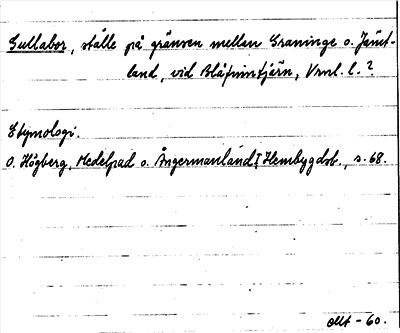 Gullabor, ställe på gränsen mellan Graninge o. Jämt-
land, vid Blåfinntjärn, Vrml. l. ?
Etymologi.
O. Högberg, Medelpad o. Ångermanland I Hembygdsb., s. 68.
- 60.